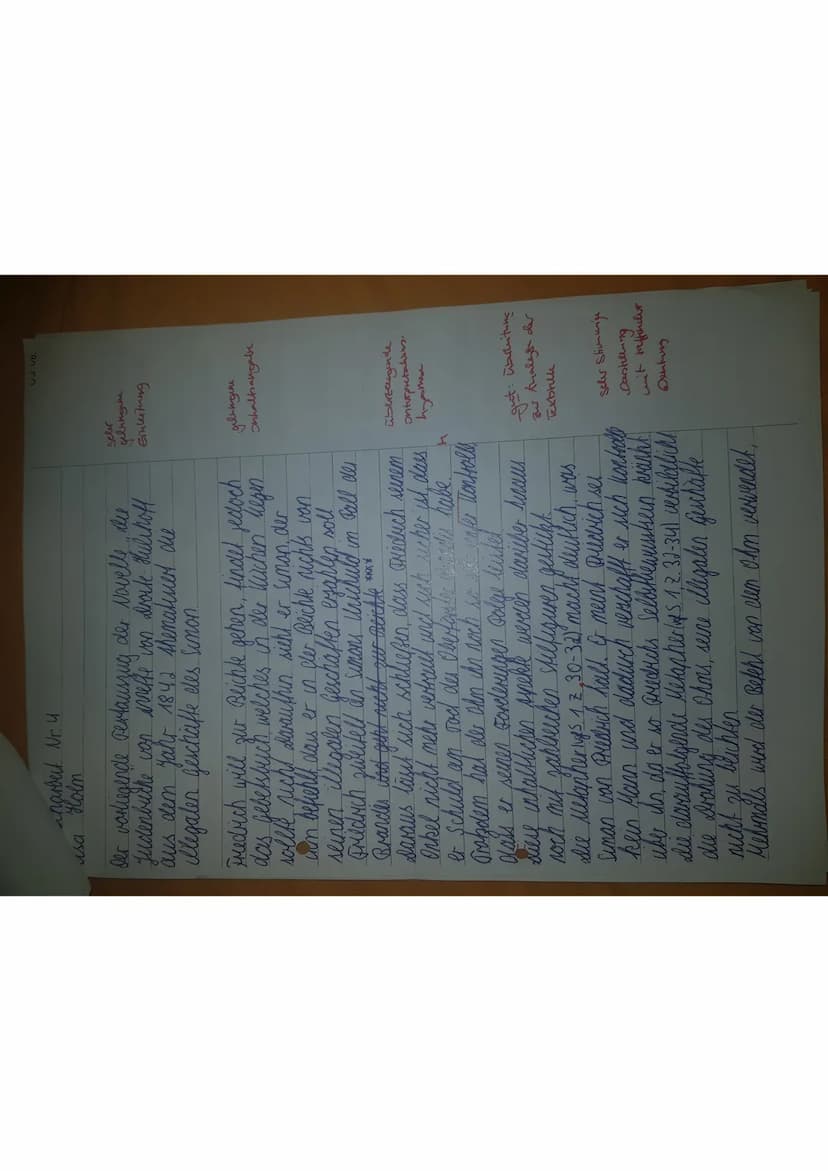 Nr. 4
Der vorliegende Textauszug der Novelle „die
Judenbuche" von Anette von Droste Hülshoff
aus dem Jahr 1842 thematisiert die
illegalen Geschäfte des Simon
sehr
gelungene
Einleitung
Friedrich will zur Beichte gehen, findet jedoch
das Gebetbuch welches in der Küchen liegen
sollte nicht. Daraufhin sieht er Simon der
ihm befiehlt, dass er in der Beichte nichts von
seinen illegalen Geschäften erzählen soll
gelungene
Inhaltsangabe
Friedrich zweifelt an Simons Unschuld im Fall des
Brandis
Daraus lässt sich schließen, dass Friedrich seinem
Onkel nicht mehr vertraut und sich sicher ist, dass
er Schuld am Tod des Oberförster habe.
Trotzdem hat der Ohm ihn noch so unter Kontrolle
dass er seinen Forderungen Folge leistet
überzeugende
Interpretations-
hypothese
Diese inhaltlichen Aspekte werden darüber hinaus
noch mit zahlreichen Stilfiguren gestützt.
gut: Überleitung
zur Analyse der
Textstelle
Die Metapher (vgl. S 1 Z. 30-32) macht deutlich, was
Simon von Friedrich hält. Er meint Friedrich sei
kein Mann und dadurch verschafft er sich Kontrolle
über ihn, da er so Friedrichs Selbstbewusstsein
die Metapher (vgl. S 1 Z. 32-34) verbildlicht
die Drohung des Ohms, seine illegalen Geschäfte
nicht zu beichten
sehr stimmige
Darstellung
mit
Deutung
Mehrmals wird der Befehl von dem Ohm verwendet,